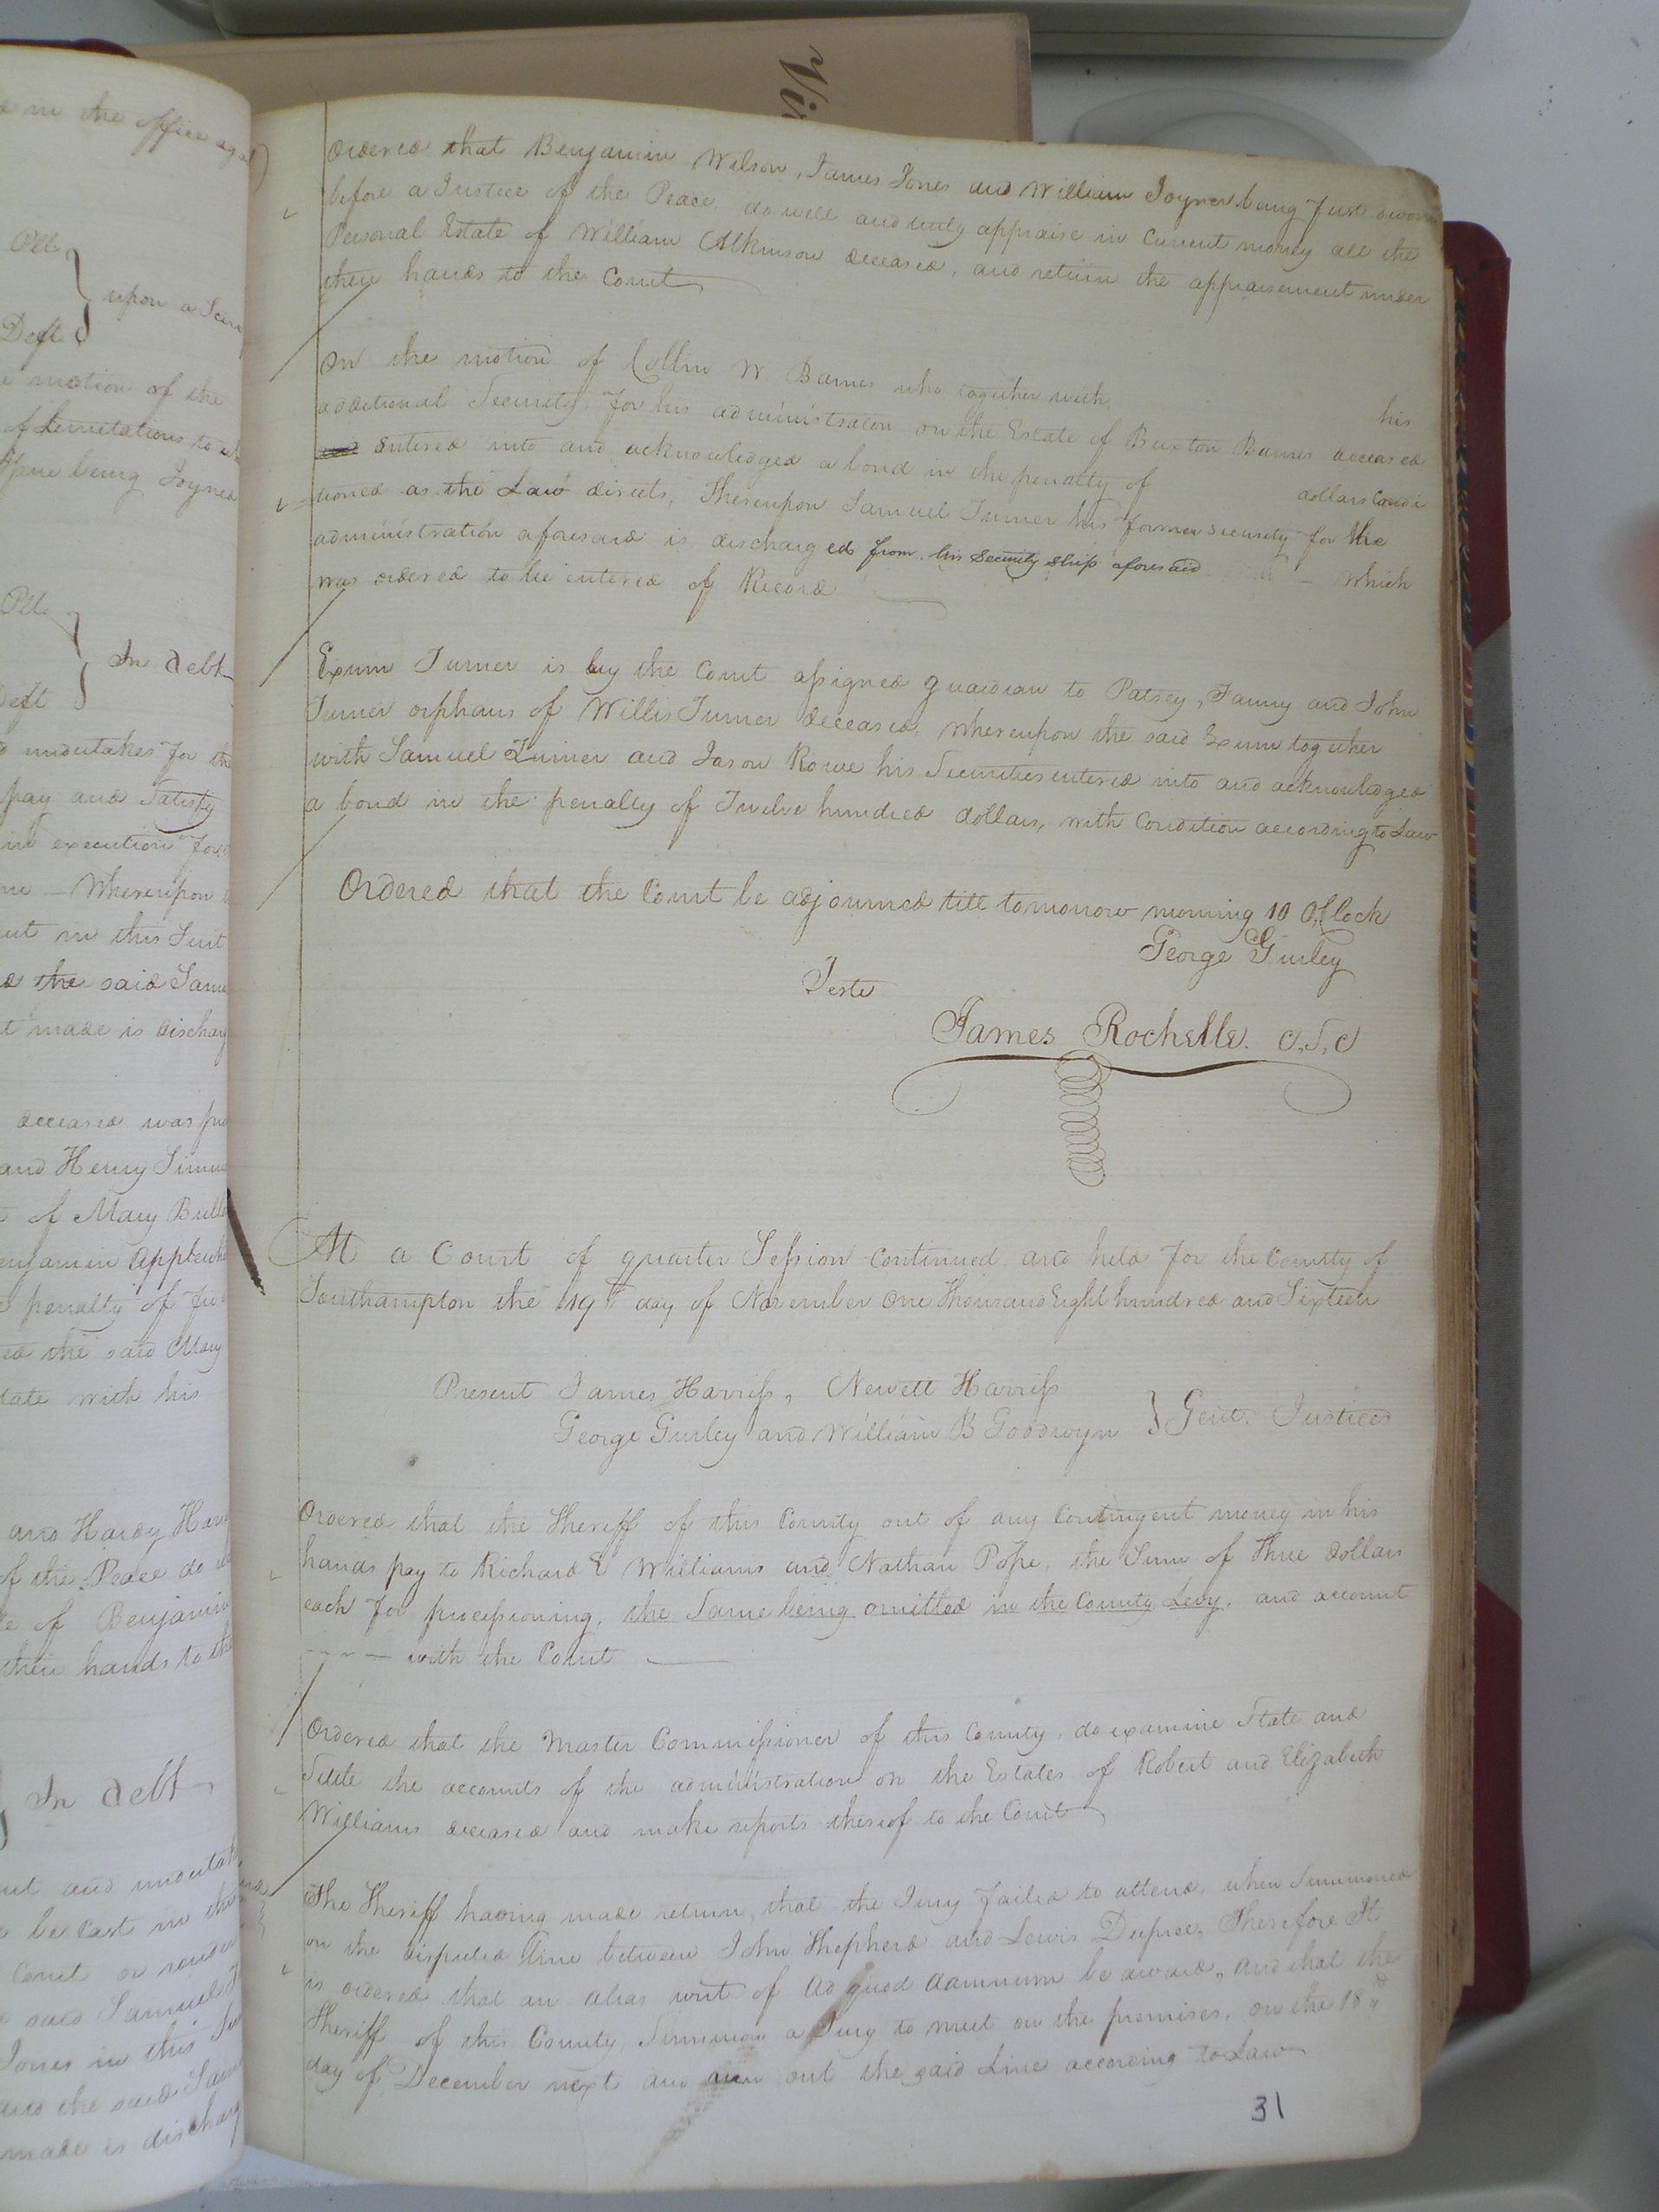 e in the office agst
Plt
upon a Scire
Deft
e motion of the
of Limitations to
Issue being Joyned
Plt
In debt
Deft
undertakes for the
pay and Satisfy
in execution for
Whereupon
in this Suit
the said Samu
made is discharg
deceased was pro
and Henry Simm
of Mary
enjamin Applewh
penalty of
the said Mary
tate with his
and Hardy Harr
of the Peace do
of Benjamin
their hands to the
In debt
and undertak
be Cast in
Court or
said Samuel
Jones in this
and the said Sam
made is discharg
Ordered that Benjamin Wilson, James Jones and William Joyner being first sworn
before a Justice of the Peace, do well and truly appraise in Current money all the
Personal Estate of William Atkinson deceased, and return the appraisement under
their hands to the Court
On the motion of Collin W Barnes who together with his
additional Security, for his administration on the Estate of Buxton Barnes deceased
entered into and acknowledged a bond in the penalty of dollars Condi
tioned as the Law directs, Thereupon Samuel Turner his former security for the
administration aforesaid is discharged from his Security ship aforesaid - which
was ordered to be entered of Record
Exum Turner is by the Court assigned guardian to Patsey, Fanny and John
Turner orphans of Willis Turner deceased, Whereupon the said Exum together
with Samuel Turner and Jason Rowe his Securities entered into and acknowledged
a bond in the penalty of Twelve hundred dollars, with Condition according to Law
Ordered that the Court be adjourned till tomorrow morning 10 OClock
George Gurley
Teste
James Rochelle. C,S,C
At a Court of quarter Session Continued and held for the County of
Southampton the 19th day of November One Thousand Eight hundred and Sixteen
Present James Harriss, Newett Harriss
George Gurley and William B Goodwyn } Gent. Justices
Ordered that the Sheriff of this County out of any Contingent money in his
hands pay to Richard E Williams and Nathan Pope, the Sum of Three dollars
each for processioning, the Same being omitted in the County Levy. and account
---- with the Court
Ordered that the Master Commissioner of this County, do examine State and
Settle the accounts of the administration on the Estates of Robert and Elizabeth
Williams deceased and make reports thereof to the Court
The Sheriff having made return, that the Jury failed to attend, when Summoned
on the disputed line between John Shepherd and Lewis Dupree. Therefore It
is ordered that an alias writ of Ad quod damnum be award, and that the
Sheriff of this County, Summon a Jury to meet on the premises, on the 18th
day of December next and out the said Line according to Law
31